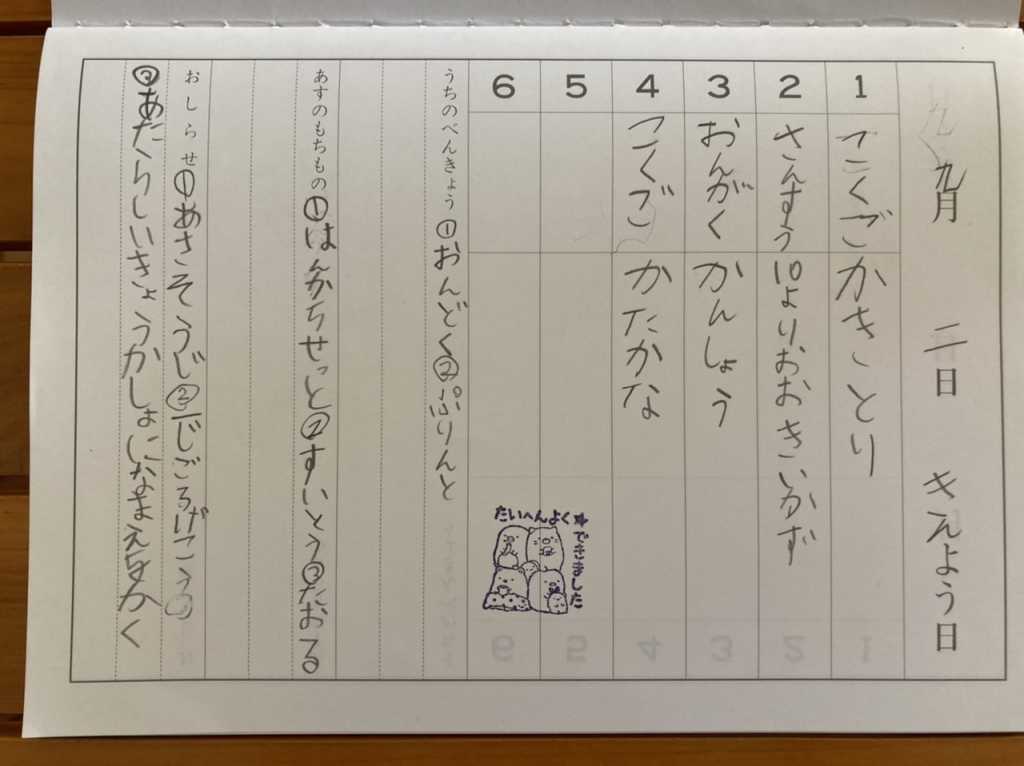 九月 二日 きんようう日
1 こくご かきことり
2 さんすう 10よりおおきいかず
3 おんがく かんしょう
4 こくご かたかな
5
6
たいへんよく
できました
うちのべんきょう ①おんどく②ぷりんと
あすのもちもの ①はんかちせっと②すいとう③たおる
おしらせ ①あさそうじ②二じごろげこう
③あたらしいきょうかしょになまえをかく